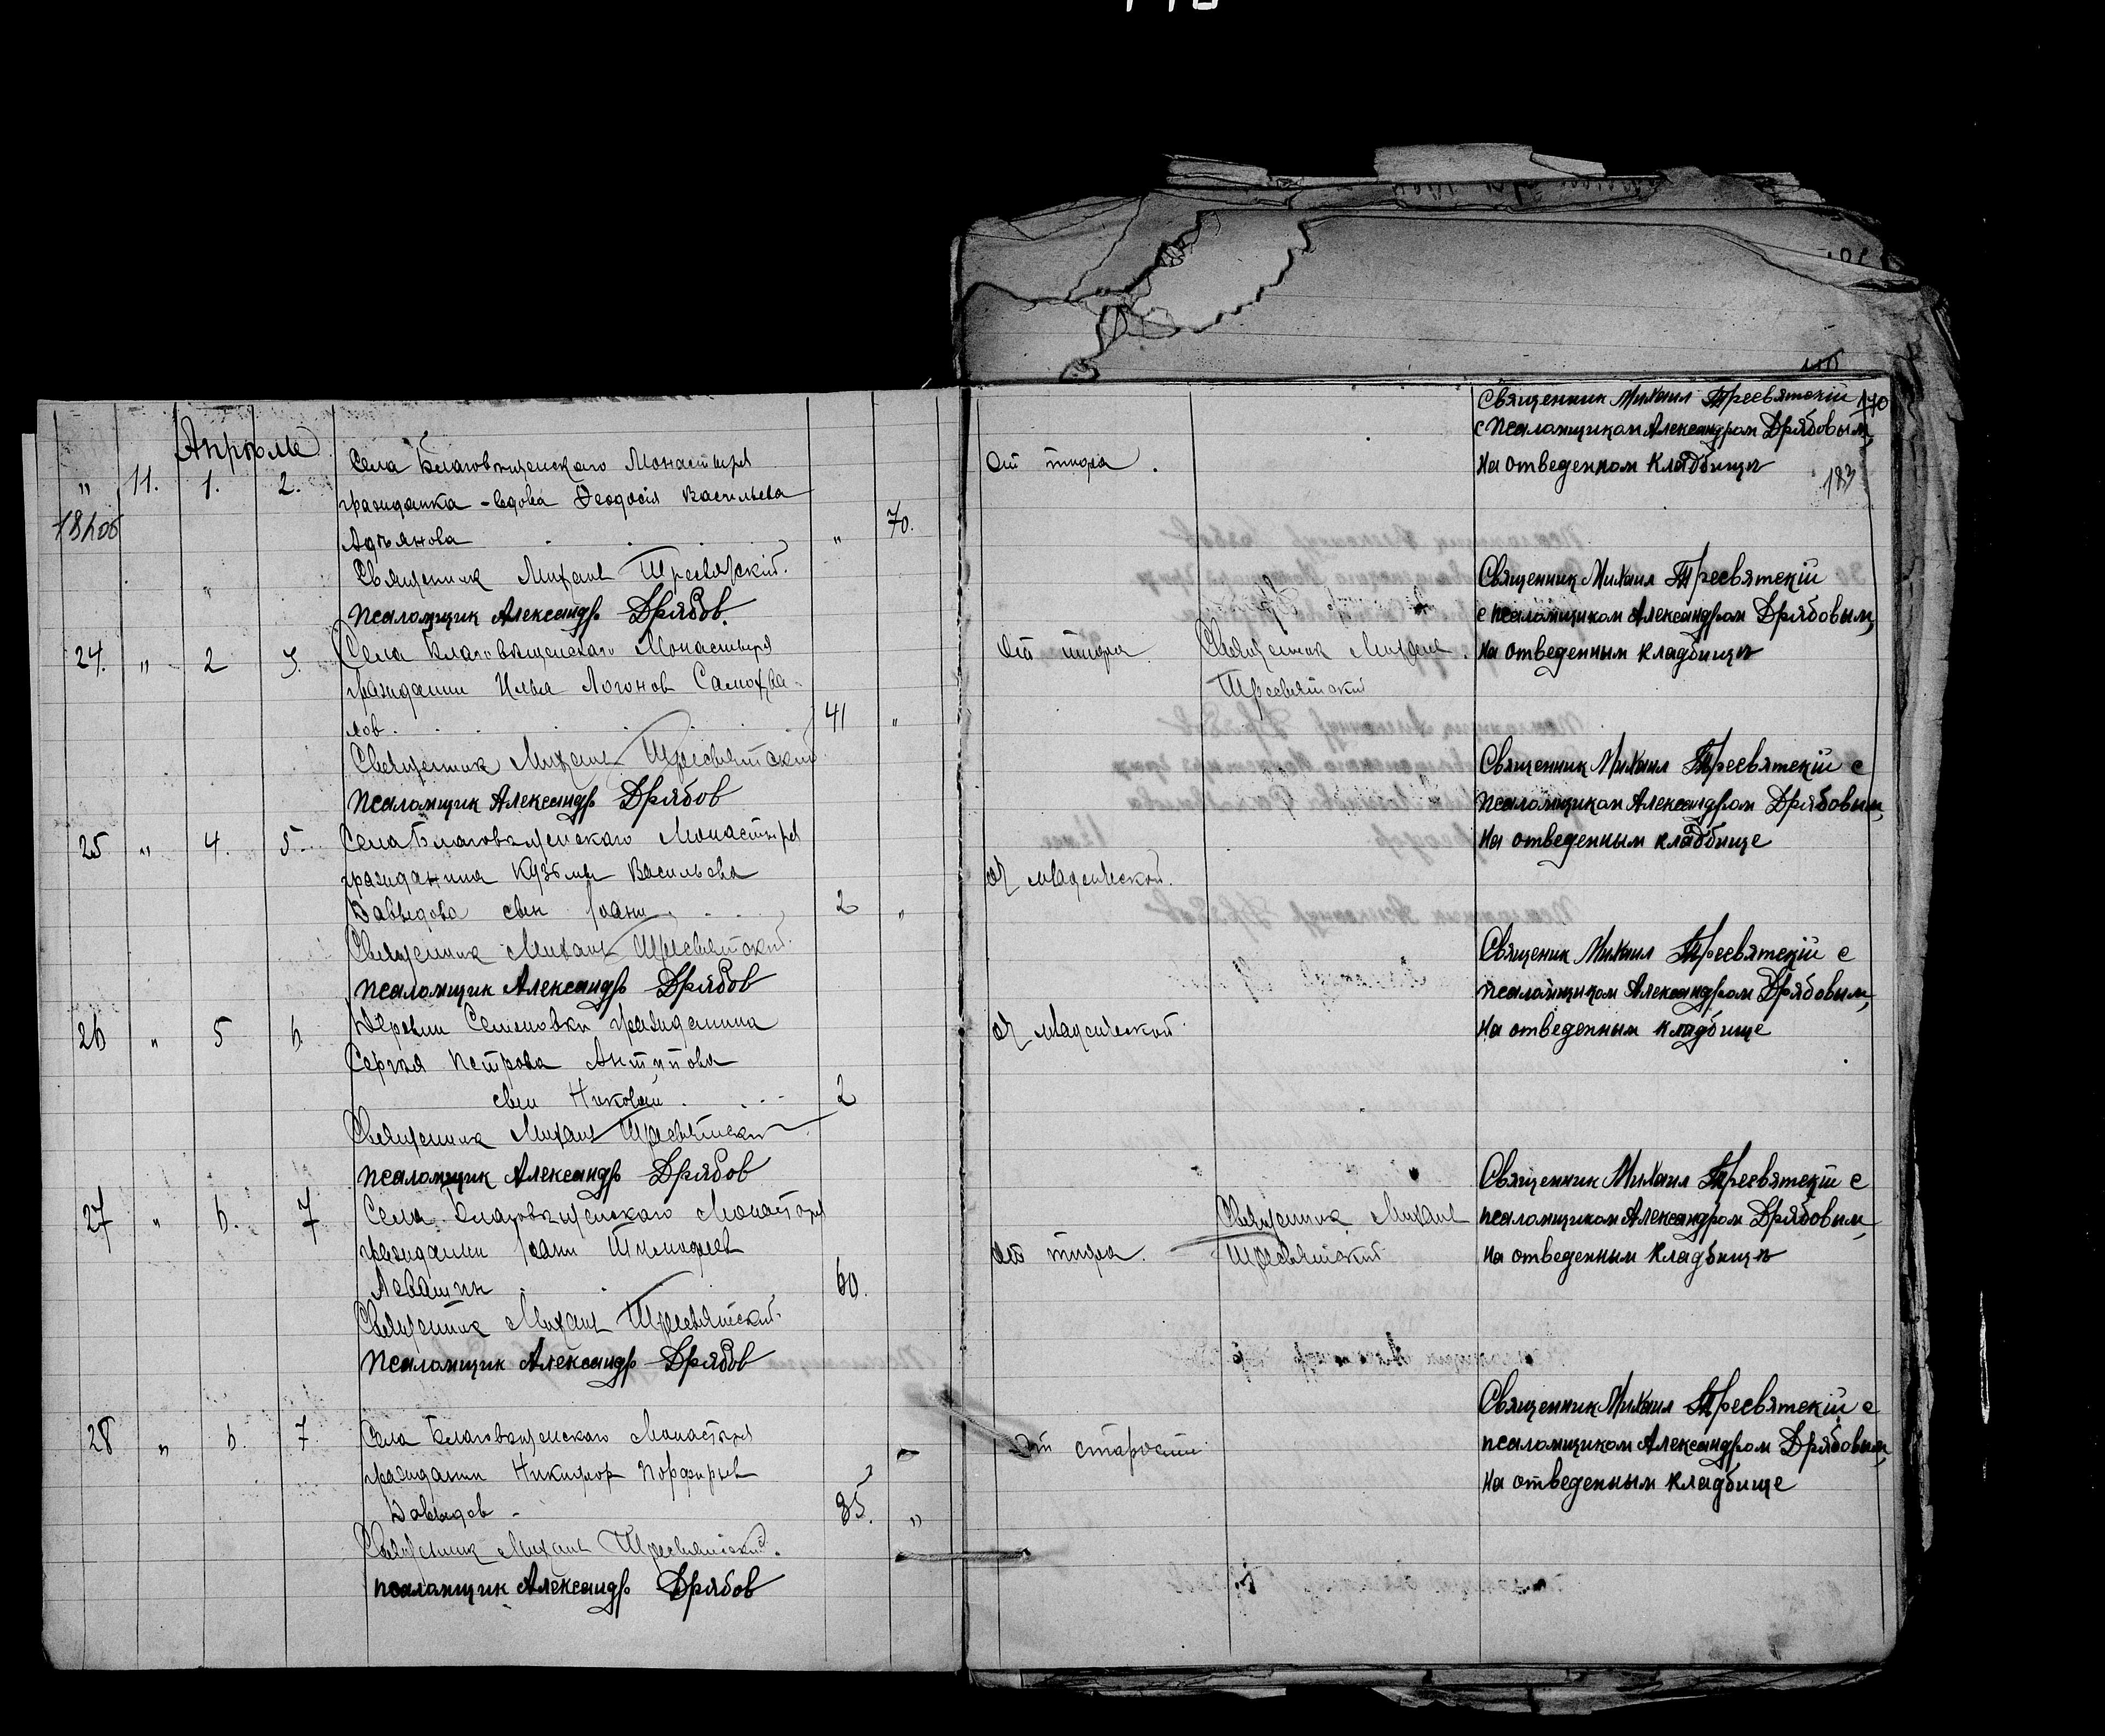 Апреле
" 11. 1. 2. Села Благовещенскаго Монастыря
гражданка - вдова Феодосія Васильева
Адъянова " 70.
Священник Михаил Тресвятский.
псаломщик Александр Дрябов.
24. " 2 3. Села Благовещенскаго Монастыря
гражданин Илья Логонов Самохва-
лов. 41 "
Священник Михаил Тресвятский
псаломщик Александр Дрябов
25 " 4. 5. Села Благовещенскаго Монастыря
гражданина Кузьмы Васильева
Давыдова сын Іоанн 2 "
Священник Михаил Тресвятский.
псаломщик Александр Дрябов
26 " 5 6. Деревни Семеновки гражданина
Сергея Петрова Антипова
сын Николай. 2
Священник Михаил Тресвятский
псаломщик Александр Дрябов
27 " 6. 7 Села Благовещенскаго Монастыря
гражданин Іоанн Тимофеев
Левашин 60.
Священник Михаил Тресвятский.
псаломщик Александр Дрябов
28 " 6. 7 Села Благовещенскаго Монастыря
гражданин Никифор Порфирьев
Давыдов - 85. "
Священник Михаил Тресвятский.
псаломщик Александр Дрябов
170
183
Священник Михаил Тресвятскій
с псаломщиком Александром Дрябовым,
от тифа. на отведенном кладбищѣ
Священник Михаил Тресвятскій
с псаломщиком Александром Дрябовым,
от тифа. Священник Михаил. на отведенным кладбищѣ
Тресвятский
Священник Михаил Тресвятскій с
псаломщиком Александром Дрябовым,
на отведенным кладбище
от младенческой.
Священик Михаил Тресвятскій с
псаломщиком Александром Дрябовым,
от младенческой. на отведенным кладбище
Священник Михаил Тресвятскій с
Священник Михаил псаломщиком Александром Дрябовым,
от тифа. Тресвятский на отведенным кладбищѣ
Священник Михаил Тресвятскій с
от старости псаломщиком Александром Дрябовым,
на отведенным кладбище